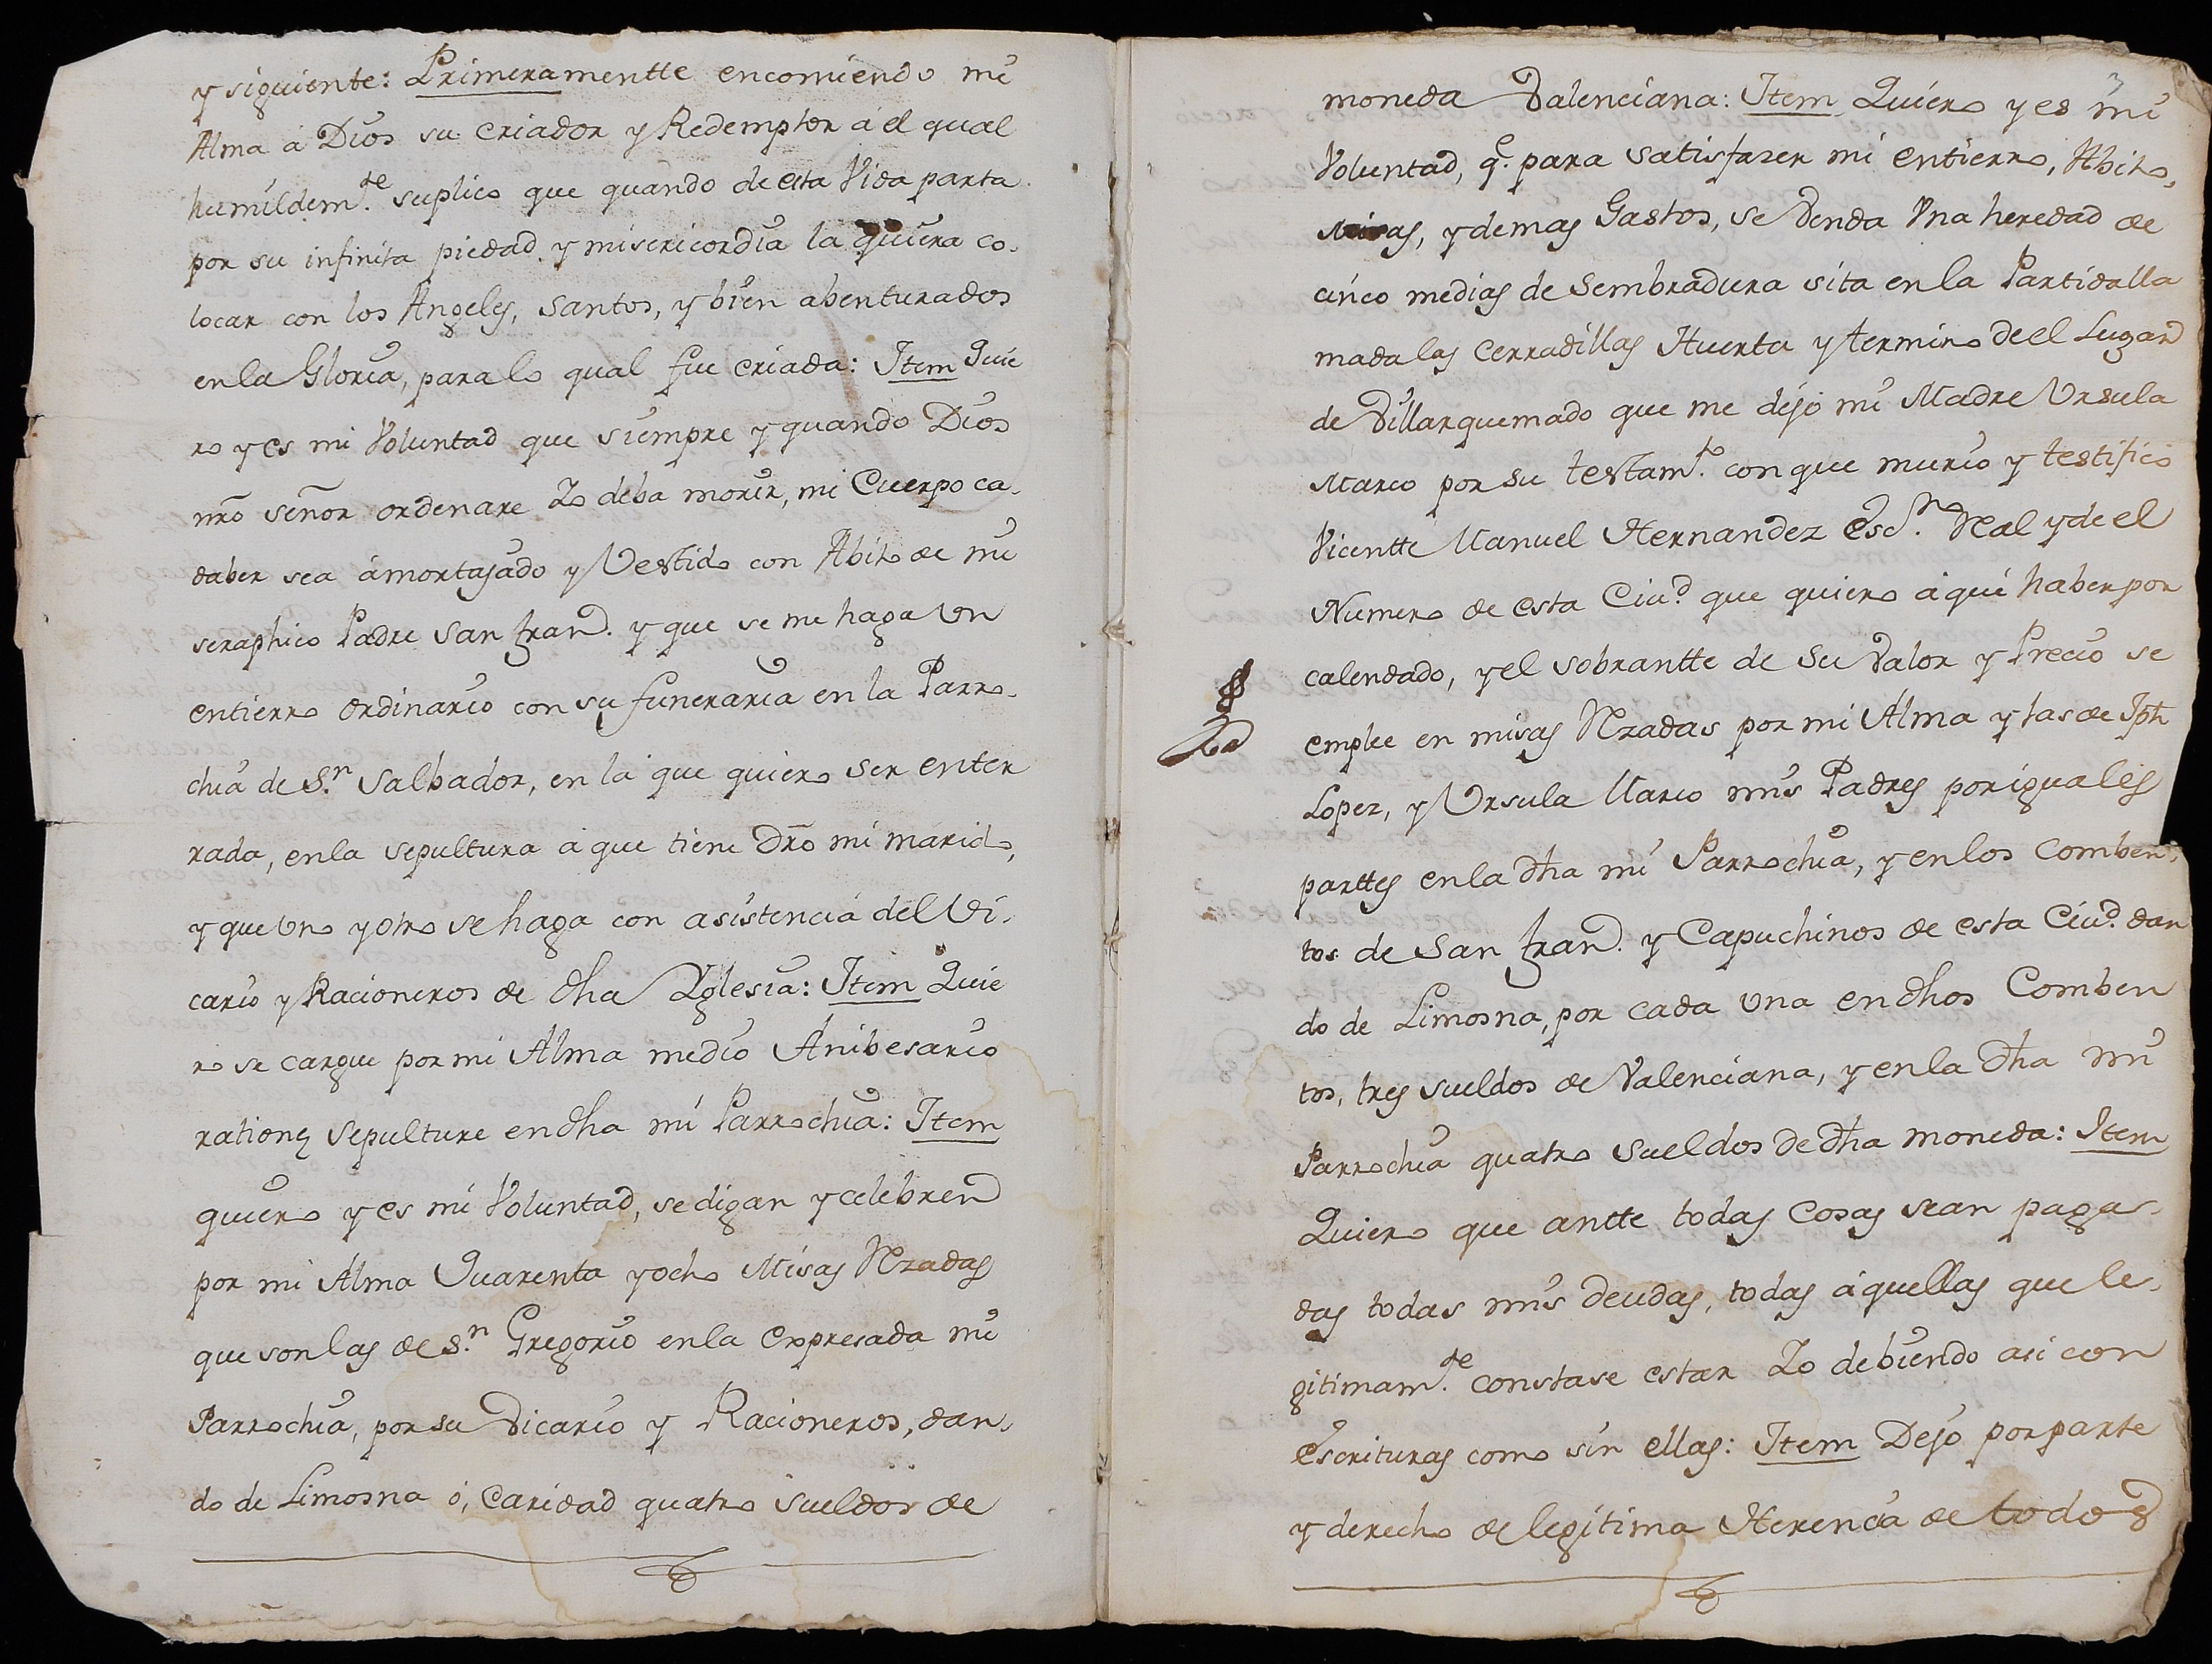 y siguiente: Primeramentte encomiendo mi
Alma á Dios su Criador y Redemptor á el qual
humildem.te suplico que quando de esta Vida parta
por su infinita piedad y misericordia la quiera co-
locar con los Angeles, Santos, y bien abenturados
en la Gloria, para lo qual fue criada: Item Quie
ro y es mi Voluntad que siempre y quando Dios
nrõ señor ordenare Yo deba morir, mi Cuerpo ca-
daber sea ámortajado y Vestido con Abito de mi
seraphico Padre San Fran.co y que se me haga Un
entierro ordinario con su funeraria en la Parro-
chia de S.n Salbador, en la que quiero ser enter
rada, en la sepultura á que tiene drõ mi marido,
y que Uno y otro se haga con asistencia del Vi-
cario y Racioneros de dha Yglesia: Item Quie
ro se cargue por mi Alma medio Anibesario
rationę sepulture en dha mi Parrochia: Item
quiero y es mi Voluntad, se digan y celebren
por mi Alma Quarenta y ocho Misas Rzadas
que son las de S.n Gregorio en la Expresada mi
Parrochia, por su Vicario y Racioneros, dan-
do de Limosna ó, Caridad quatro Sueldos de
moneda Valenciana: Item Quiero y es mi
Voluntad, q.e para satisfazer mi entierro, Abito,
Misas, y demas Gastos, se Venda Una heredad de
cinco medias de Sembradura sita en la Partida lla
mada las Cerradillas Huerta y termino de el Lugar
de Villarquemado que me dejó mi Madre Ursula
Marco por su testam.to con que murio y testifico
Vicentte Manuel Hernandez Esc.no Real y de el
Numero de esta Ciu.d que quiero áqui haber por
calendado, y el sobrantte de su Valor y Precio se
emplee en misas Rzadas por mi Alma y las de Jph
Lopez, y Ursula Marco mis Padres por iguales
parttes en la dha mi Parrochia, y en los Comben-
tos de San Fran.co y Capuchinos de esta Ciu.d dan
do de Limosna, por cada Una en dhos Comben
tos, tres sueldos de Valenciana, y en la dha mi
Parrochia quatro Sueldos de dha moneda: Item
Quiero que antte todas Cosas sean paga-
das todas mis deudas, todas áquellas que le-
gitimam.te constase estar Yo debiendo asi con
Escrituras como sin ellas: Item Dejo por parte
y derecho de legitima Herencia de todos